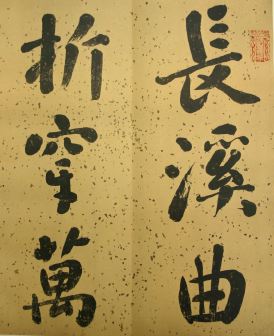 長溪曲
折穿萬